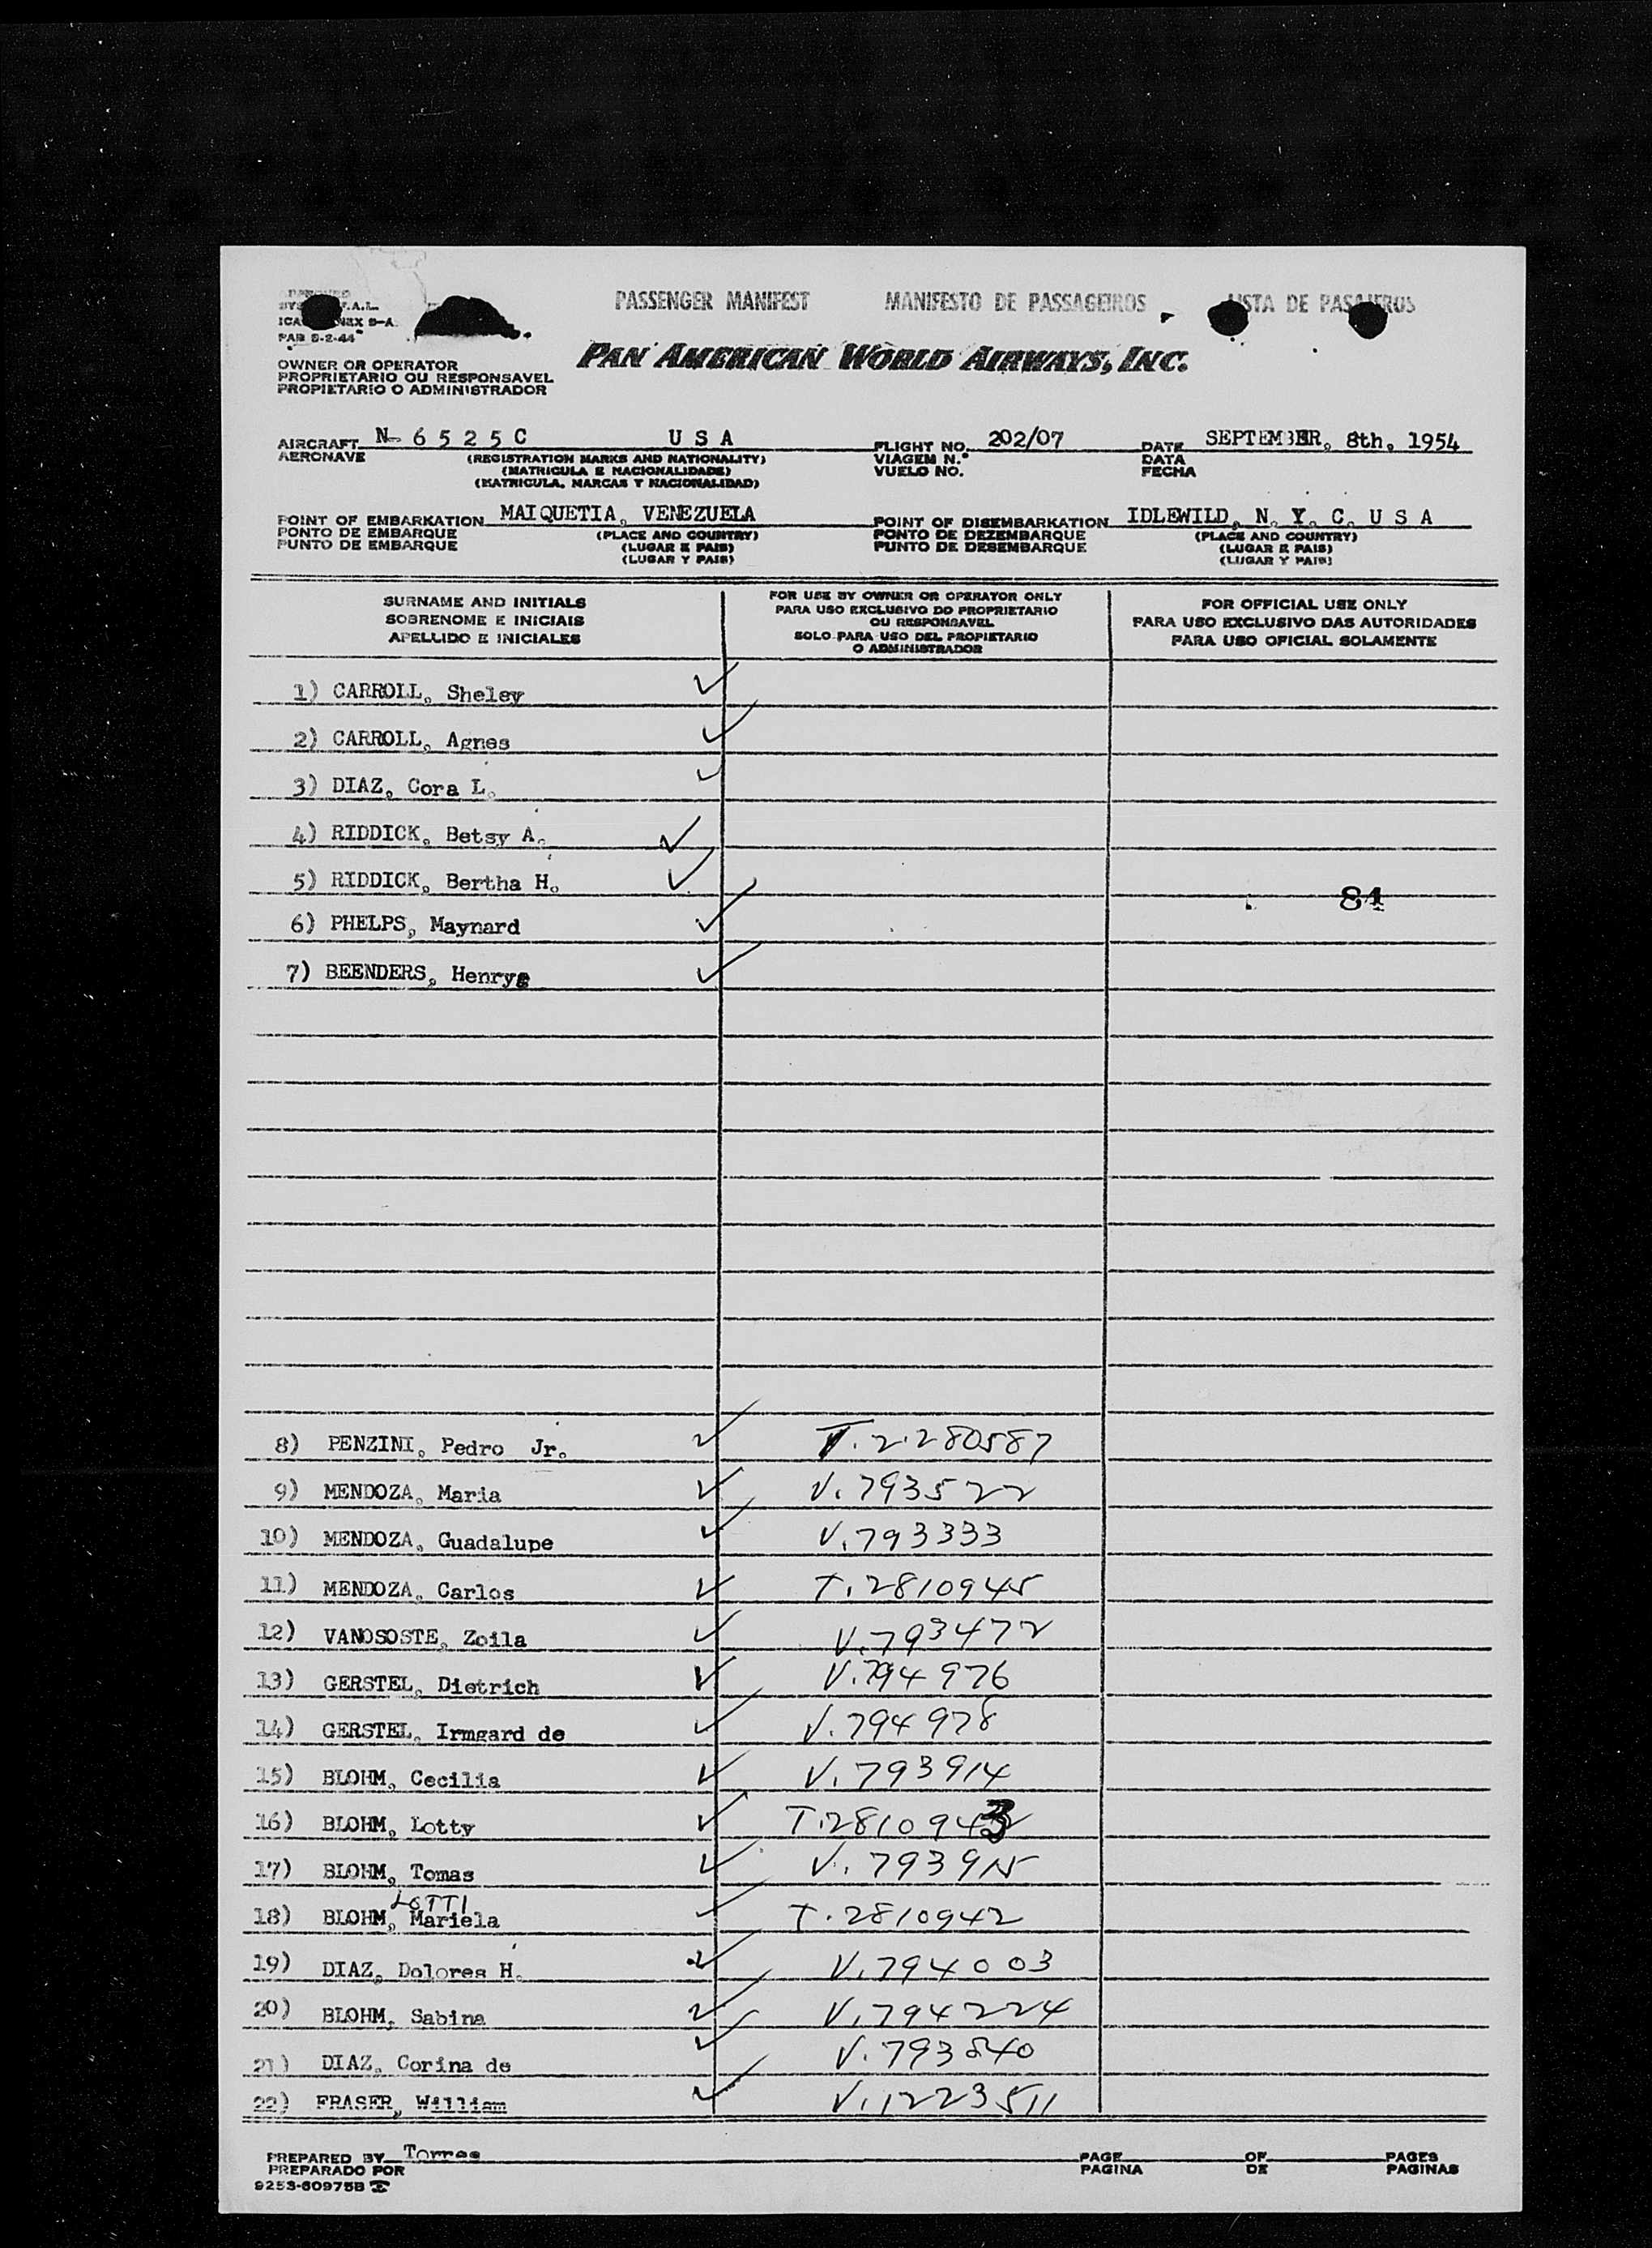 PASSENGER MANIFEST MANIFESTO DE PASSAGEIROS LISTA DE PASAJEROS
PAB 5-2-44
PAN AMERICAN WORLD AIRWAYS, INC.
OWNER OR OPERATOR
PROPRIETARIO OU RESPONSAVEL
PROPIETARIO O ADMINISTRADOR
AIRCRAFT N- 6 5 2 5 C U S A FLIGHT NO. 202/07 DATE SEPTEMBER, 8th, 1954
AERONAVE (REGISTRATION MARKS AND NATIONALITY) VIAGEM N.º DATA
(MATRICULA E NACIONALIDADE) VUELO NO. FECHA
(MATRICULA, MARCAS Y NACIONALIDAD)
POINT OF EMBARKATION MAIQUETIA, VENEZUELA POINT OF DISEMBARKATION IDLEWILD, N. Y. C. U S A
PONTO DE EMBARQUE (PLACE AND COUNTRY) PONTO DE DEZEMBARQUE (PLACE AND COUNTRY)
PUNTO DE EMBARQUE (LUGAR E PAIS) PUNTO DE DESEMBARQUE (LUGAR E PAIS)
(LUGAR Y PAIS) (LUGAR Y PAIS)
SURNAME AND INITIALS
SOBRENOME E INICIAIS
APELLIDO E INICIALES
FOR USE BY OWNER OR OPERATOR ONLY
PARA USO EXCLUSIVO DO PROPRIETARIO
OU RESPONSAVEL
SOLO PARA USO DEL PROPIETARIO
O ADMINISTRADOR
FOR OFFICIAL USE ONLY
PARA USO EXCLUSIVO DAS AUTORIDADES
PARA USO OFICIAL SOLAMENTE
1) CARROLL, Sheley ✓
2) CARROLL, Agnes ✓
3) DIAZ, Cora L. ✓
4) RIDDICK, Betsy A. ✓
5) RIDDICK, Bertha H. ✓
84
6) PHELPS, Maynard ✓
7) BEENDERS, Henry ✓
8) PENZINI, Pedro Jr. ✓ T.2.280587
9) MENDOZA, Maria ✓ V.793522
10) MENDOZA, Guadalupe ✓ V.793333
11) MENDOZA, Carlos ✓ T.2810945
12) VANOSOSTE, Zoila ✓ V.793472
13) GERSTEL, Dietrich ✓ V.794976
14) GERSTEL, Irmgard de ✓ V.794978
15) BLOHM, Cecilia ✓ V.793914
16) BLOHM, Lotty ✓ T.2810943
17) BLOHM, Tomas ✓ V.793915
LOTTI
18) BLOHM, Mariela ✓ T.2810942
19) DIAZ, Dolores H. ✓ V.794003
20) BLOHM, Sabina ✓ V.794224
21) DIAZ, Corina de ✓ V.793840
22) FRASER, William ✓ V.1223511
PREPARED BY Torres PAGE OF PAGES
PREPARADO POR PAGINA DE PAGINAS
9253-60975B